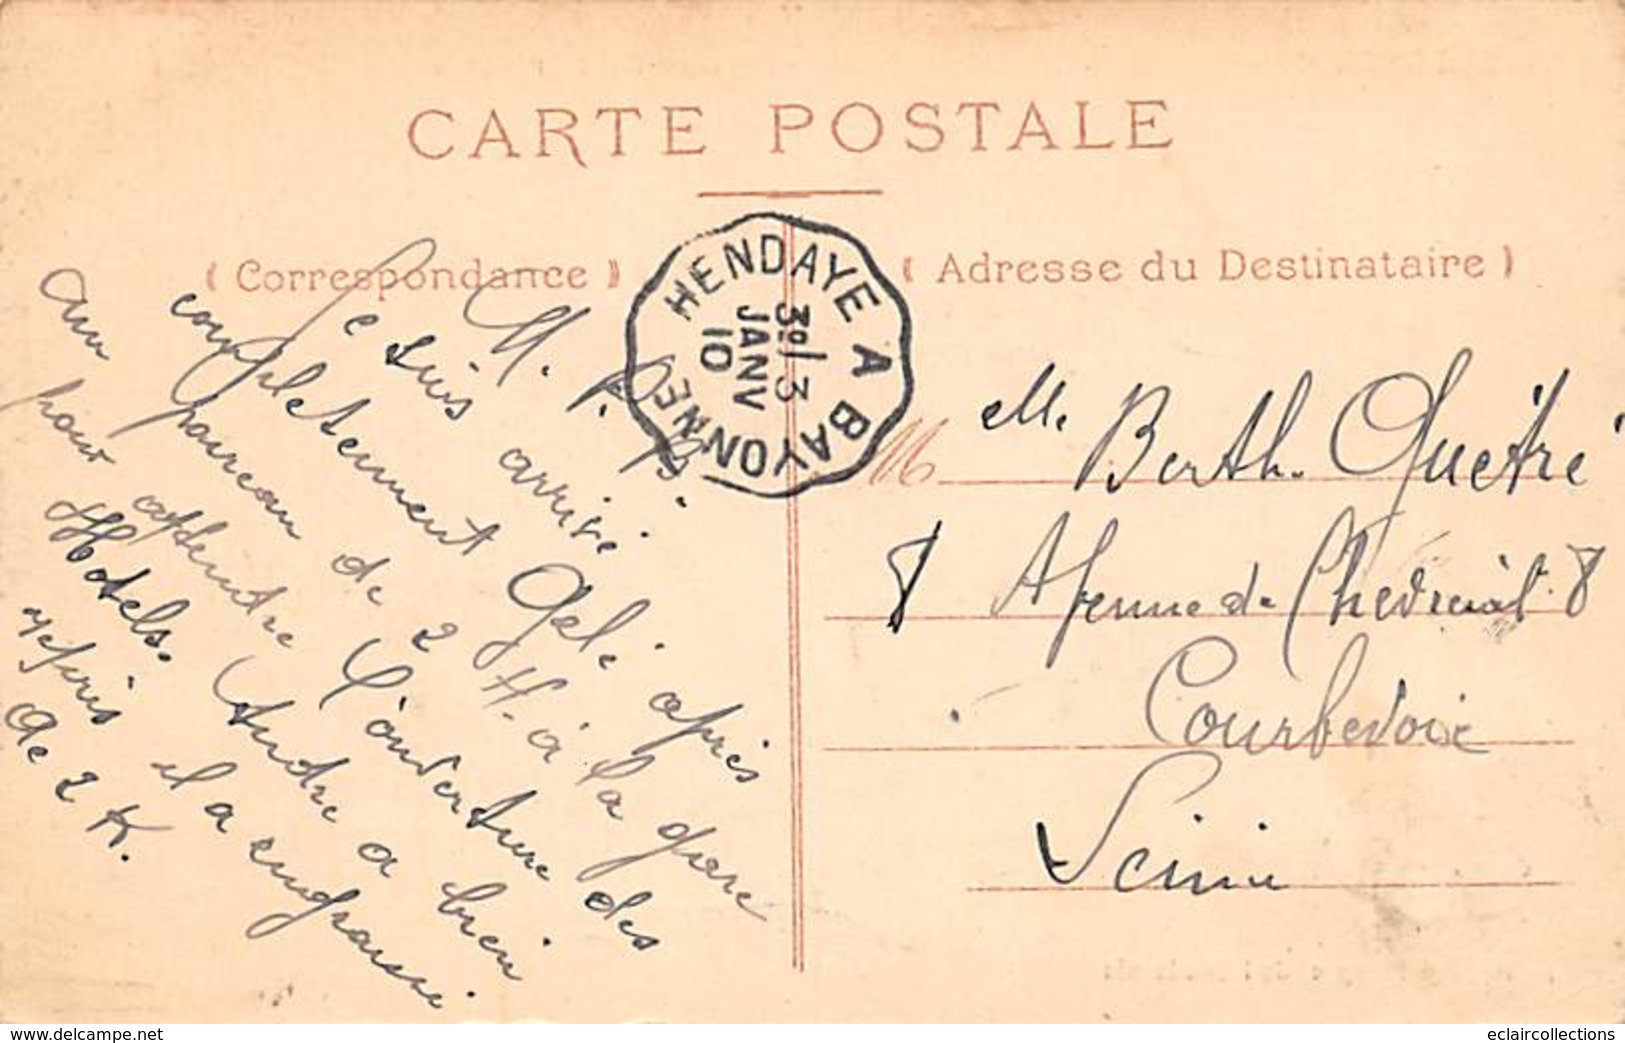 CARTE POSTALE
( Correspondance )
( Adresse du Destinataire )
HENDAYE A BAYONNE
3º/3
JANV
10
M. P. B.
Je suis arrivé
completement Gelé après
un panreau de 2 H. à la gare
pour attendre l'ouverture des
Hotels. Andre a bien
repris il a engraissé
de 2 K.
M
Mle Berth. Quétré
8 Avenue de Chevreul 8
Courbevoie
Seine
www.delcampe.net
eclaircollections